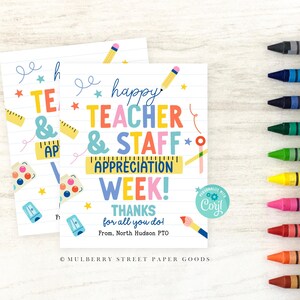 happy
TEACHER
& STAFF
APPRECIATION
WEEK!
THANKS
for all you do!
From, North Hudson PTO
Corjl
© MULBERRY STREET PAPER GOODS